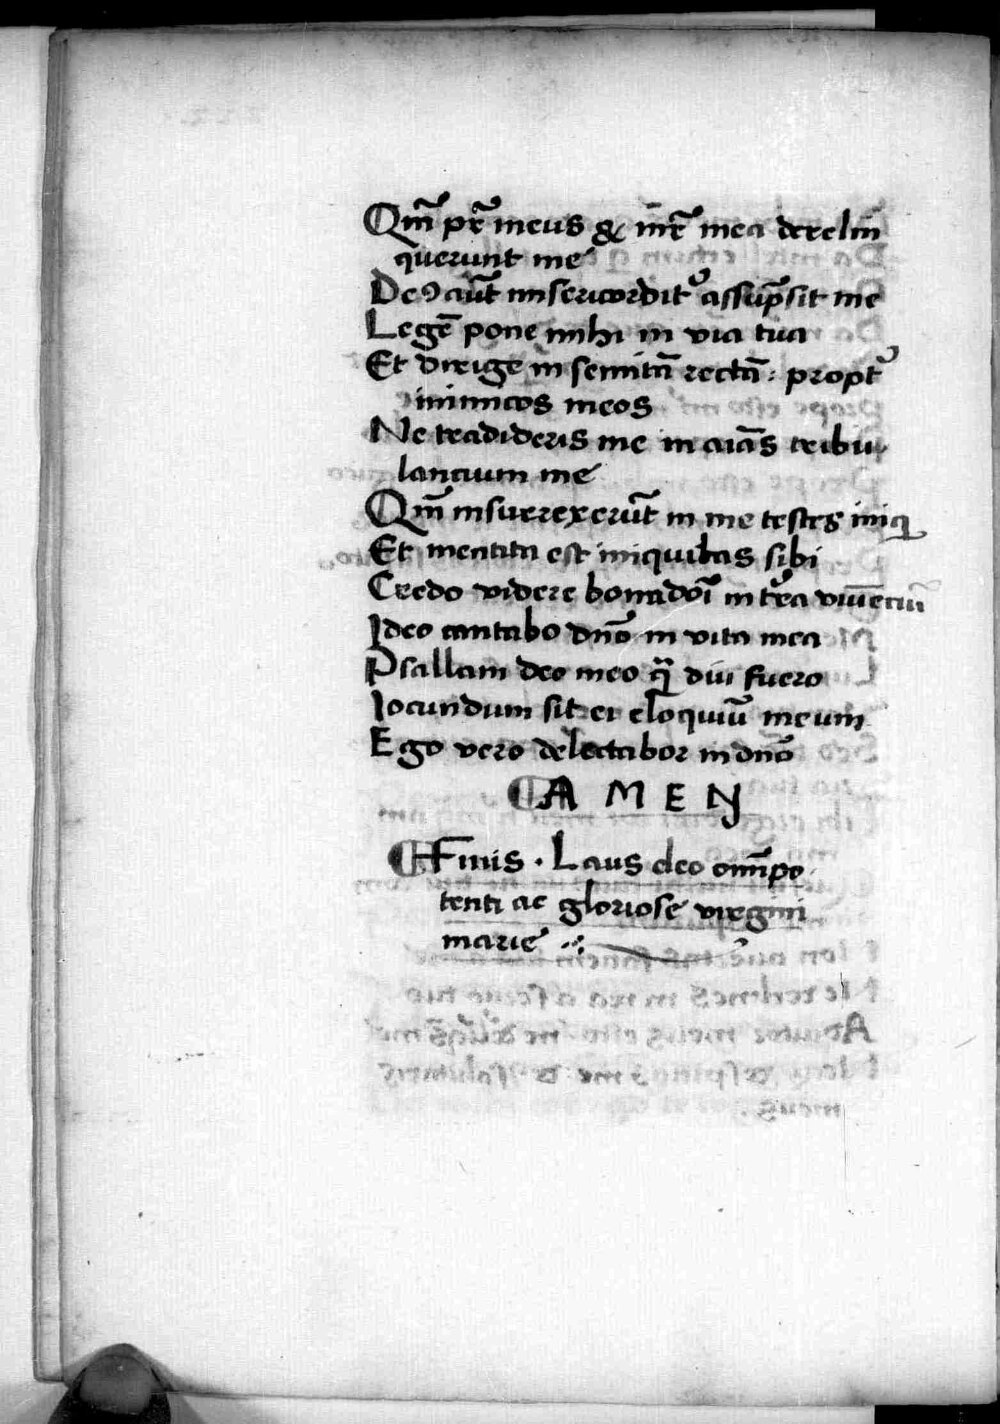 Qm̃ pr̃ meus & mr̃ mea derelin
querunt me
Deꝰ aũt misericordit᷑ assũpsit me
Legẽ pone mihi in via tua
Et dirige in semitã rectã: propt᷑
inimicos meos
Ne tradideris me in aiãs tribu
lancium me
Qm̃ insurrexerũt in me testes iniq
Et mentita est iniquitas sibi
Credo videre bona dñi in t᷑ra viuẽciũ
Ideo cantabo dnõ in vita mea
Psallam deo meo q̃ diu fuero
Iocundum sit ei eloquiũ meum
Ego vero delectabor in dnõ
AMEN
Finis · Laus deo omĩpo
tenti ac gloriose virgini
marie